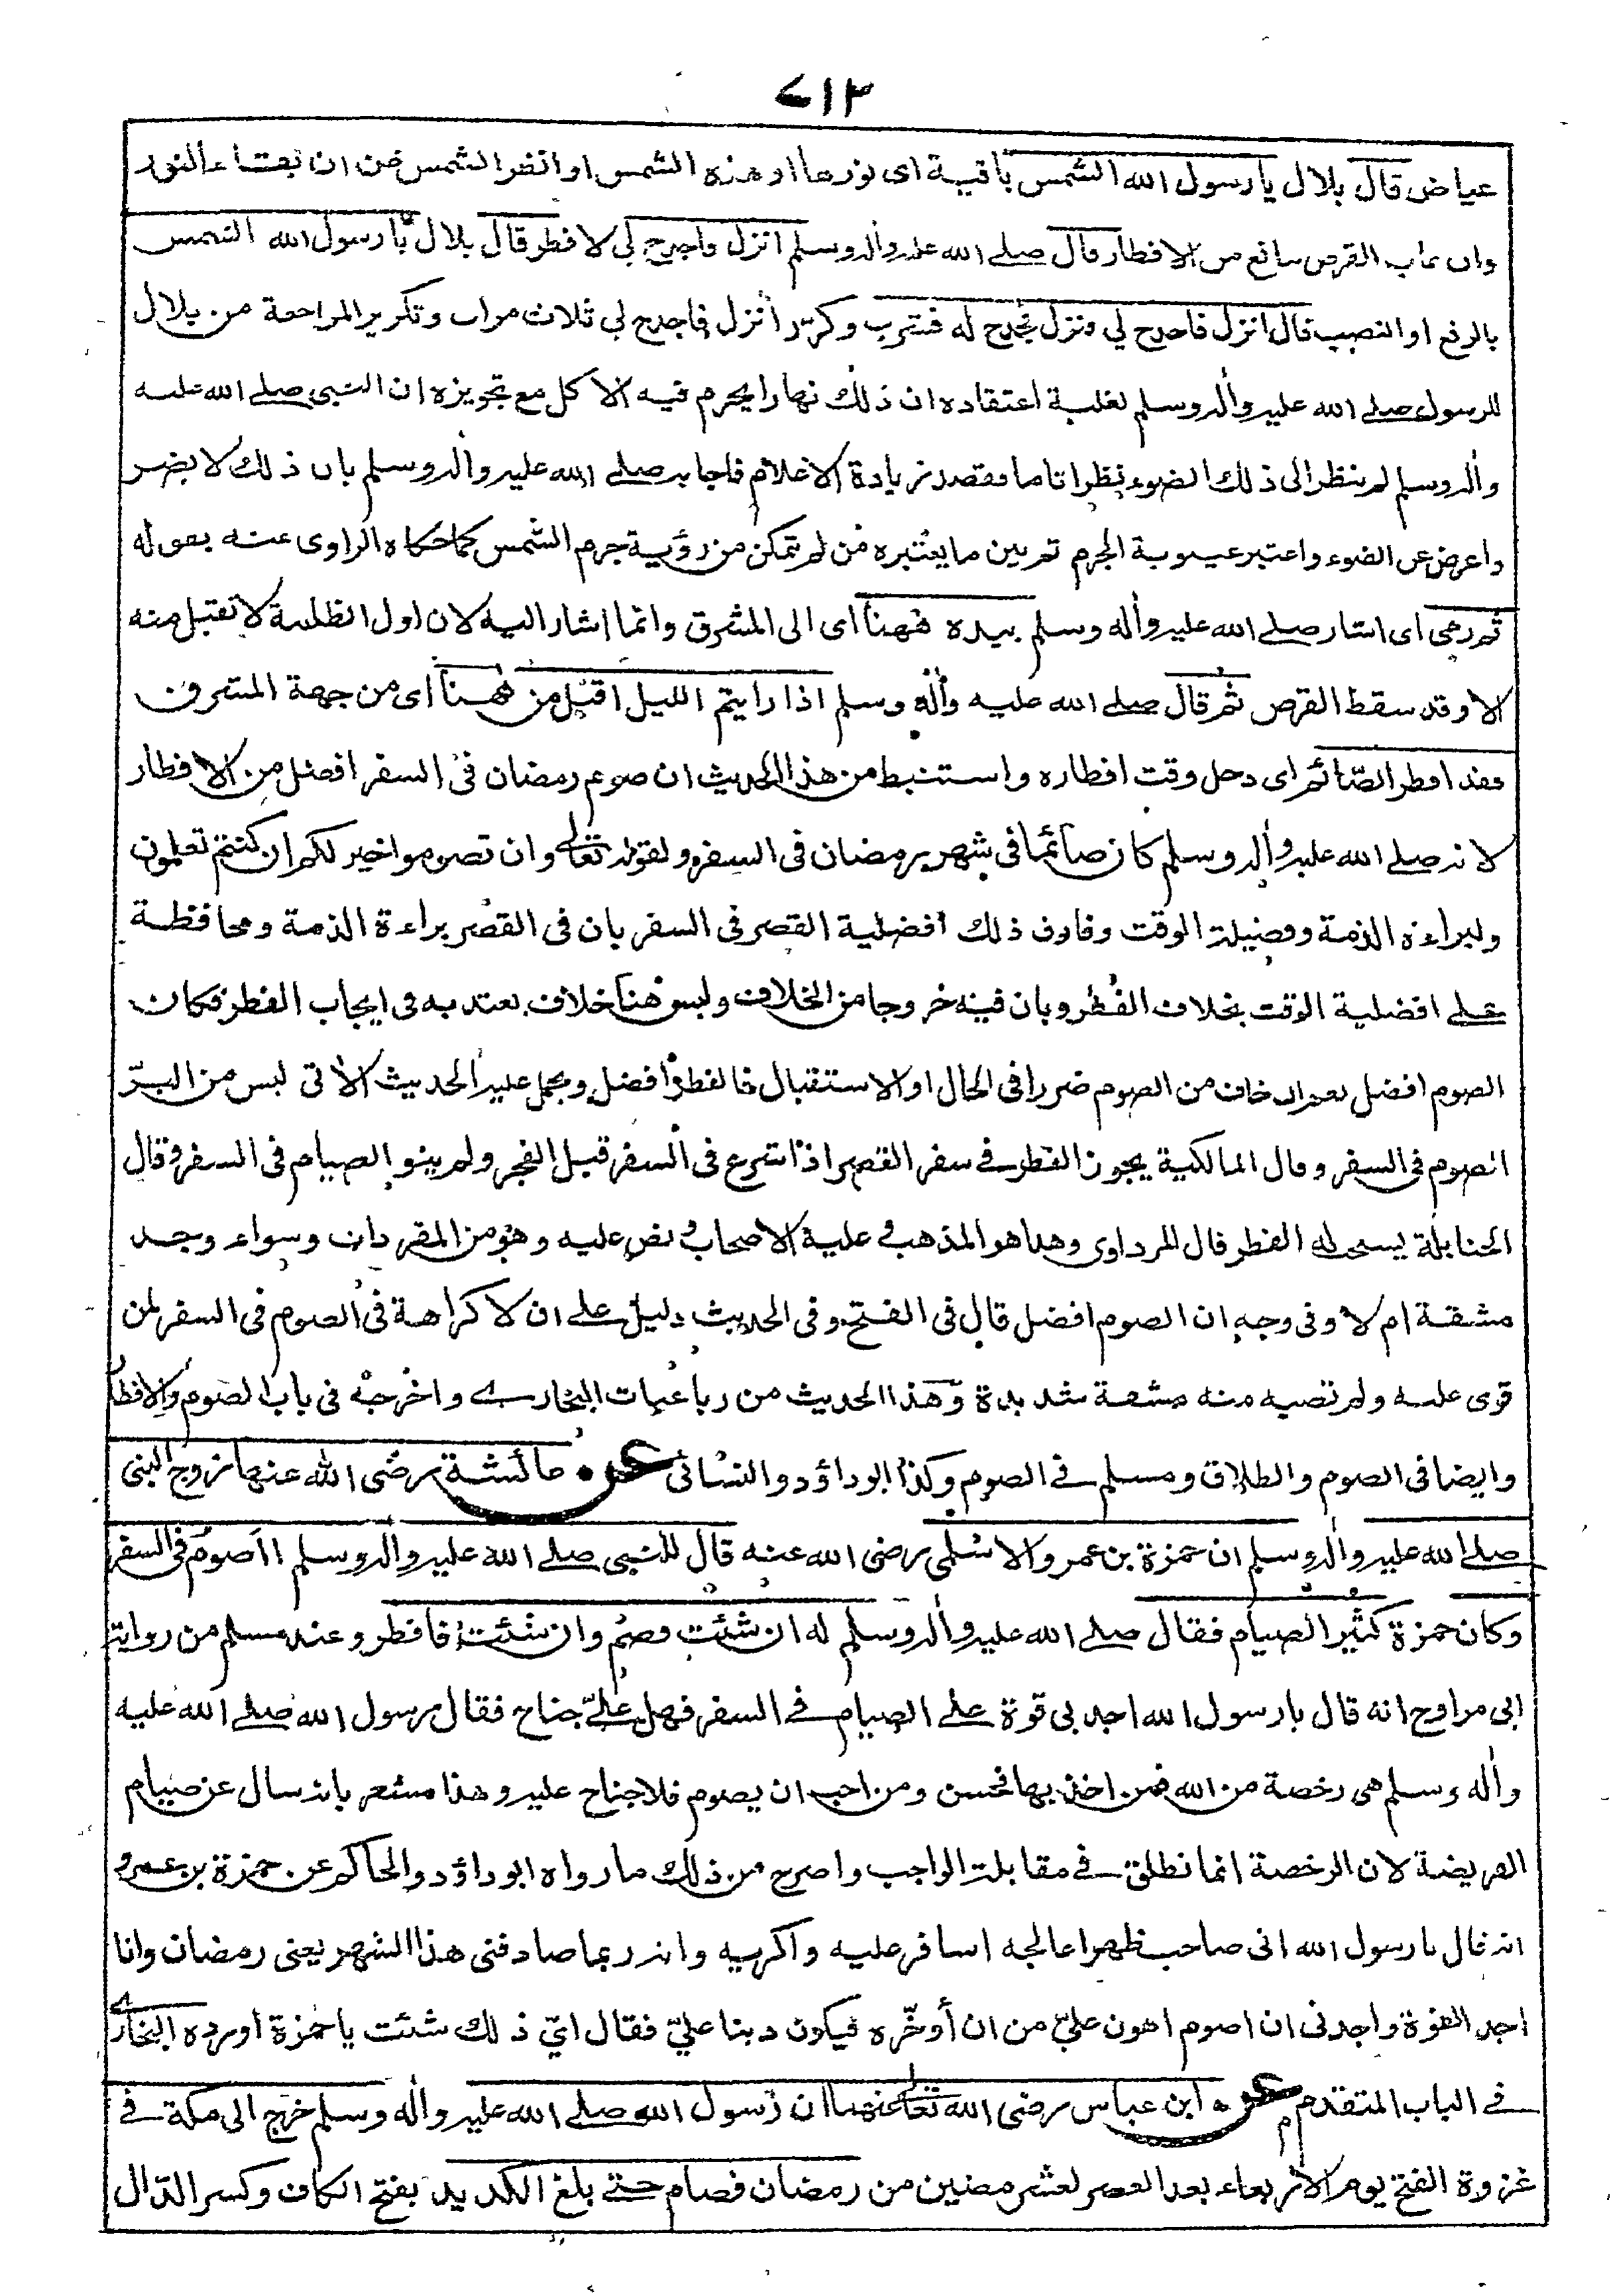 ٧١٣
عياض قال بلال يا رسول الله الشمس باقية اى نورها او هذه الشمس او انظر الشمس ظن ان بقاء النور
وان غاب القرص مانع من الافطار قال صلے الله عليه واٰله وسلم انزل فاجدح لي لافطر قال بلال يا رسول الله الشمس
بالرفع او النصب قال انزل فاجدح لي فنزل فجدح له فشرب وكرّر انزل فاجدح لي ثلاث مرات وتكرير المراجعة من بلال
للرسول صلے الله عليه واٰله وسلم لغلبة اعتقاده ان ذلك نهارا يحرم فيه الاكل مع تجويزه ان النبي صلے الله عليه
واٰله وسلم لم ينظر الى ذلك الضوء نظرا تاما فقصد زيادة الاعلام فاجابه صلے الله عليه واٰله وسلم بان ذلك لا يضر
واعرض عن الضوء واعتبر غيبوبة الجرم ثم بين ما يعتبره من لم يتمكن من رؤية جرم الشمس كما حكاه الراوى عنه بقوله
ثم رمى اى اشار صلے الله عليه واٰله وسلم بيده ههنا اى الى المشرق وانما اشار اليه لان اول الظلمة لا تقبل منه
الا وقد سقط القرص ثم قال صلے الله عليه واٰله وسلم اذا رايتم الليل اقبل من ههنا اى من جهة المشرق
فقد افطر الصّائم اى دخل وقت افطاره واستنبط من هذا الحديث ان صوم رمضان فى السفر افضل من الافطار
لانه صلے الله عليه واٰله وسلم كان صائما فى شهر رمضان فى السفر ولقوله تعالى وان تصوموا خير لكم ان كنتم تعلمون
ولبراءة الذمة وفضيلة الوقت وفارق ذلك افضلية القصر فى السفر بان فى القصر براءة الذمة ومحافظة
على افضلية الوقت بخلاف الفطر وبان فيه خروجا من الخلاف وليس هنا خلاف يعتد به فى ايجاب الفطر فكان
الصوم افضل نعم ان خاف من الصوم ضررا فى الحال او الاستقبال فالفطر افضل ويحمل عليه الحديث الاتى ليس من البرّ
الصوم فى السفر وقال المالكية يجوز الفطر فے سفر القصر اذا شرع فى السفر قبل الفجر ولم ينو الصيام فى السفر وقال
الحنابلة يسن له الفطر قال المرداوى وهذا هو المذهب وعليه الاصحاب ونص عليه وهو من المفردات وسواء وجد
مشقة ام لا وفى وجه ان الصوم افضل قال فى الفتح وفى الحديث دليل على ان لا كراهة فى الصوم فى السفر لمن
قوى عليه ولم تصبه منه مشقة شديدة وهذا الحديث من رباعيات البخارے واخرجه فى باب الصوم والافطار
وايضا فى الصوم والطلاق ومسلم فے الصوم وكذا ابو داؤد والنسائى عن عائشة رضى الله عنها زوج النبى
صلے الله عليه واٰله وسلم ان حمزة بن عمرو الاسلمى رضى الله عنه قال للنبى صلے الله عليه واٰله وسلم ااصوم فى السفر
وكان حمزة كثير الصيام فقال صلے الله عليه واٰله وسلم له ان شئت فصم وان شئت فافطر وعند مسلم من رواية
ابى مراوح انه قال يا رسول الله اجد بى قوة على الصيام فے السفر فهل علىّ جناح فقال رسول الله صلے الله عليه
واٰله وسلم هى رخصة من الله فمن اخذ بها فحسن ومن احب ان يصوم فلا جناح عليه وهذا مشعر بانه سال عن صيام
الفريضة لان الرخصة انما تطلق فے مقابلة الواجب واصرح من ذلك ما رواه ابو داؤد والحاكم عن حمزة بن عمرو
انه قال يا رسول الله انى صاحب ظهر اعالجه اسافر عليه واكريه وانه ربما صادفنى هذا الشهر يعنى رمضان وانا
اجد القوة واجدنى ان اصوم اهون علىّ من ان أوخّره فيكون دينا علىّ فقال اىّ ذلك شئت يا حمزة اورده البخارے
فے الباب المتقدم عن ابن عباس رضى الله تعالى عنهما ان رسول الله صلے الله عليه واٰله وسلم خرج الى مكة فے
غزوة الفتح يوم الاربعاء بعد العصر لعشر مضين من رمضان فصام حتے بلغ الكديد بفتح الكاف وكسر الدّال